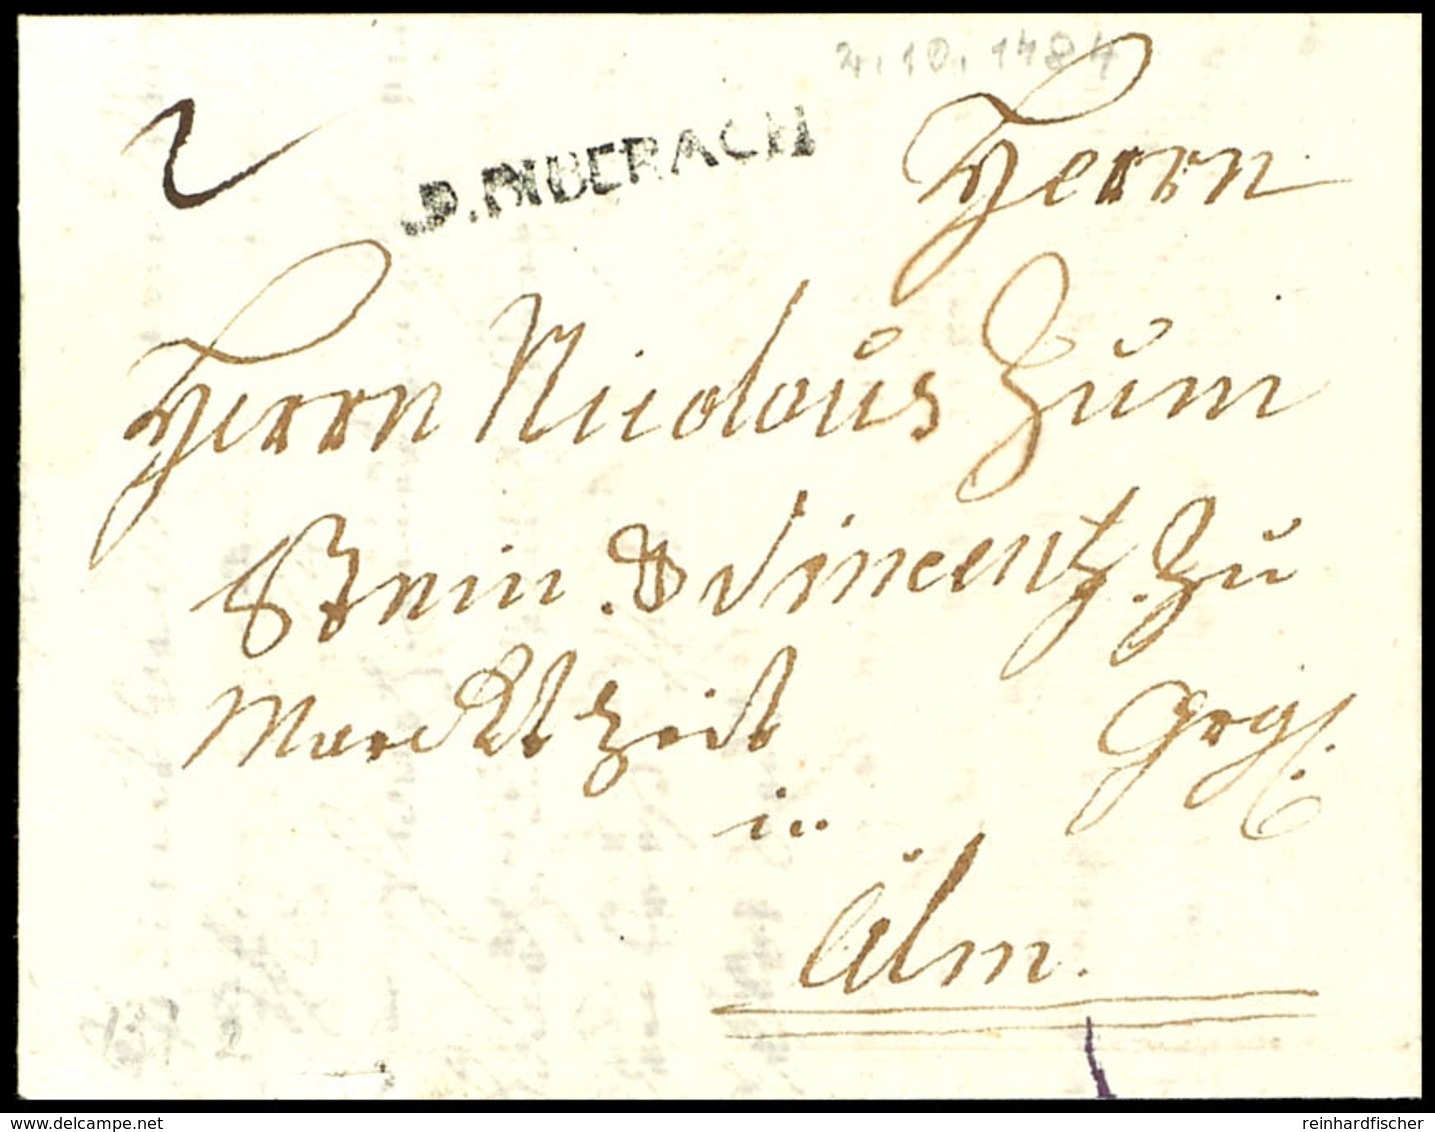 2.10.1784
2
D.BIBERACH
Herrn
Herrn Nicolaus Zum
Stein & Vincentz. Zu
Marckt Zeit
in
Ulm.
www.delcampe.net
reinhardfischer